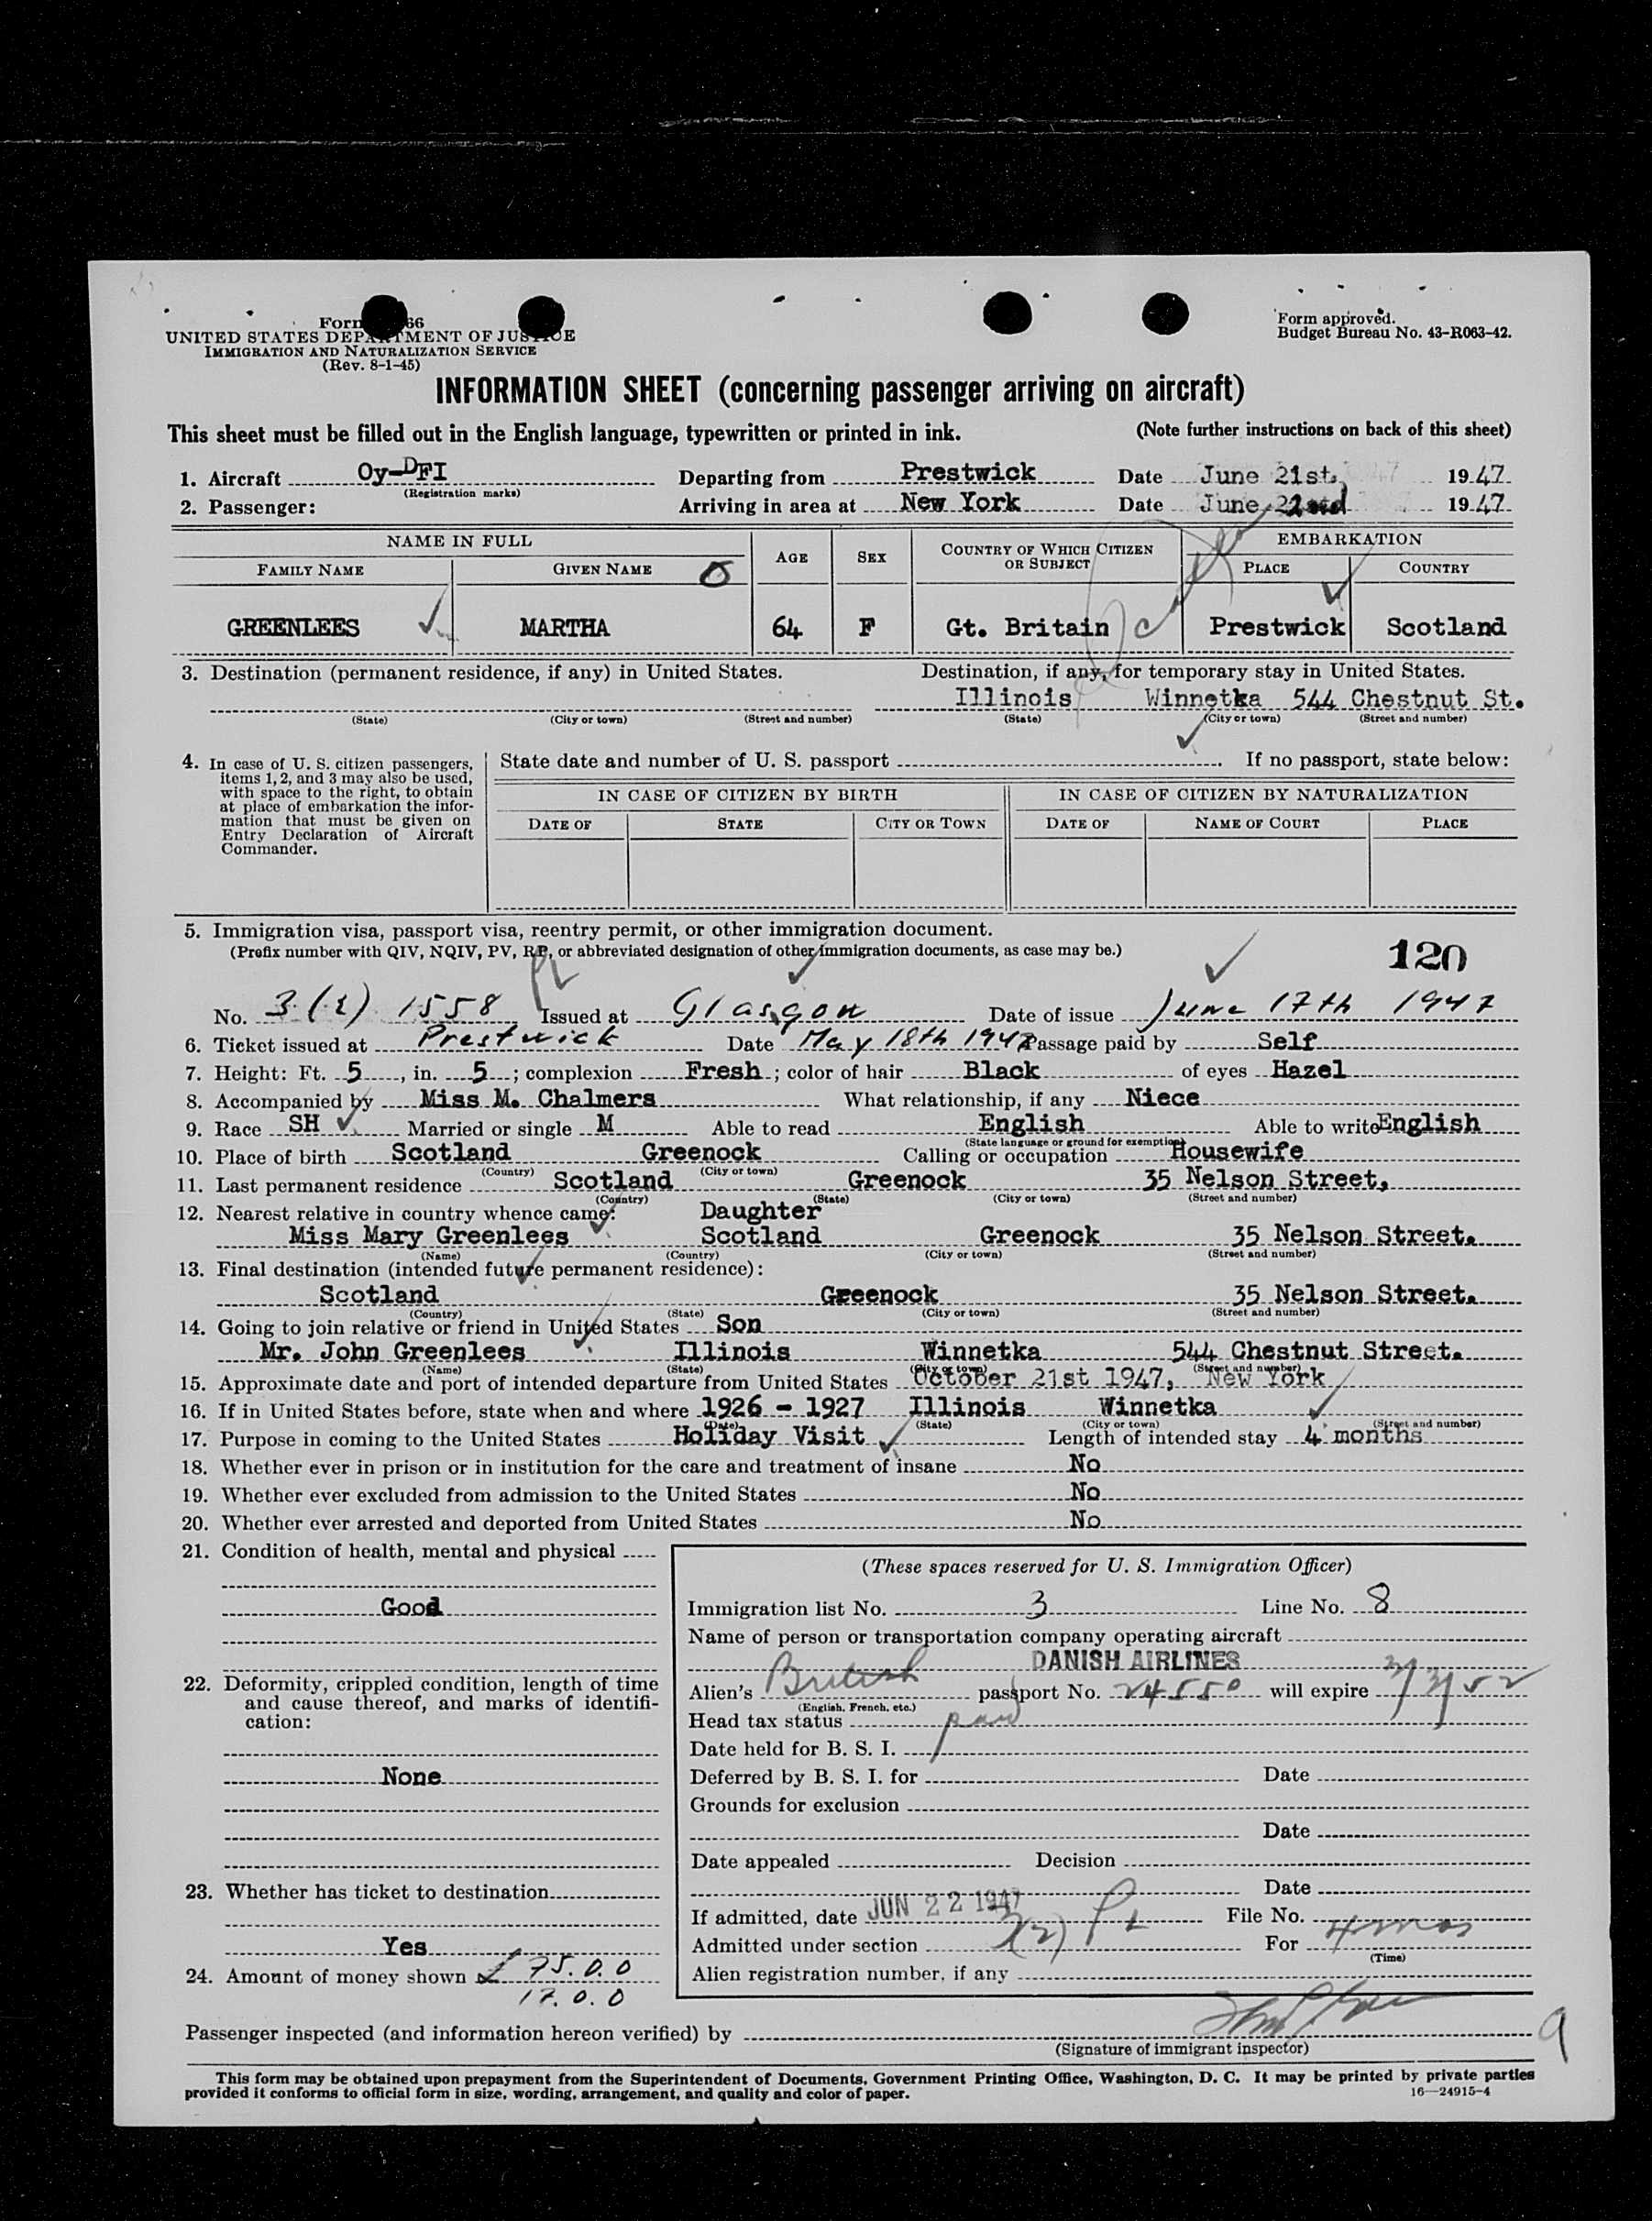 Form 66
UNITED STATES DEPARTMENT OF JUSTICE
IMMIGRATION AND NATURALIZATION SERVICE
(Rev. 8-1-45)
Form approved.
Budget Bureau No. 43-R063-42.
INFORMATION SHEET (concerning passenger arriving on aircraft)
This sheet must be filled out in the English language, typewritten or printed in ink. (Note further instructions on back of this sheet)
1. Aircraft Oy-DFI Departing from Prestwick Date June 21st. 1947
(Registration marks)
2. Passenger: Arriving in area at New York Date June 22nd 1947
NAME IN FULL AGE SEX COUNTRY OF WHICH CITIZEN OR SUBJECT EMBARKATION
FAMILY NAME GIVEN NAME PLACE COUNTRY
GREENLEES MARTHA 64 F Gt. Britain Prestwick Scotland
3. Destination (permanent residence, if any) in United States. Destination, if any, for temporary stay in United States.
Illinois Winnetka 544 Chestnut St.
(State) (City or town) (Street and number) (State) (City or town) (Street and number)
4. In case of U. S. citizen passengers, items 1, 2, and 3 may also be used, with space to the right, to obtain at place of embarkation the information that must be given on Entry Declaration of Aircraft Commander.
State date and number of U. S. passport . If no passport, state below:
IN CASE OF CITIZEN BY BIRTH IN CASE OF CITIZEN BY NATURALIZATION
DATE OF STATE CITY OR TOWN DATE OF NAME OF COURT PLACE
5. Immigration visa, passport visa, reentry permit, or other immigration document.
(Prefix number with QIV, NQIV, PV, RP, or abbreviated designation of other immigration documents, as case may be.)
120
No. 3(2) 1558 Issued at Glasgow Date of issue June 17th 1947
6. Ticket issued at Prestwick Date May 18th 1947 Passage paid by Self
7. Height: Ft. 5, in. 5; complexion Fresh; color of hair Black of eyes Hazel
8. Accompanied by Miss M. Chalmers What relationship, if any Niece
9. Race SH Married or single M Able to read English Able to write English
(State language or ground for exemption)
10. Place of birth Scotland Greenock Calling or occupation Housewife
(Country) (City or town)
11. Last permanent residence Scotland Greenock 35 Nelson Street,
(Country) (State) (City or town) (Street and number)
12. Nearest relative in country whence came: Daughter
Miss Mary Greenlees Scotland Greenock 35 Nelson Street.
(Name) (Country) (City or town) (Street and number)
13. Final destination (intended future permanent residence):
Scotland Greenock 35 Nelson Street.
(Country) (State) (City or town) (Street and number)
14. Going to join relative or friend in United States Son
Mr. John Greenlees Illinois Winnetka 544 Chestnut Street.
(Name) (State) (City or town) (Street and number)
15. Approximate date and port of intended departure from United States October 21st 1947, New York
16. If in United States before, state when and where 1926 - 1927 Illinois Winnetka
(Date) (State) (City or town) (Street and number)
17. Purpose in coming to the United States Holiday Visit Length of intended stay 4 months
18. Whether ever in prison or in institution for the care and treatment of insane No
19. Whether ever excluded from admission to the United States No
20. Whether ever arrested and deported from United States No
21. Condition of health, mental and physical
Good
22. Deformity, crippled condition, length of time and cause thereof, and marks of identification:
None
23. Whether has ticket to destination
Yes
24. Amount of money shown £ 75.0.0
17.0.0
(These spaces reserved for U. S. Immigration Officer)
Immigration list No. 3 Line No. 8
Name of person or transportation company operating aircraft
DANISH AIRLINES
Alien's British passport No. 24550 will expire 3/3/52
(English, French, etc.)
Head tax status paid
Date held for B. S. I.
Deferred by B. S. I. for Date
Grounds for exclusion
Date
Date appealed Decision
Date
If admitted, date JUN 22 1947 File No.
Admitted under section 3(2) For 4 mos
(Time)
Alien registration number, if any
Passenger inspected (and information hereon verified) by
(Signature of immigrant inspector)
9
This form may be obtained upon prepayment from the Superintendent of Documents, Government Printing Office, Washington, D. C. It may be printed by private parties
provided it conforms to official form in size, wording, arrangement, and quality and color of paper. 16—24915-4